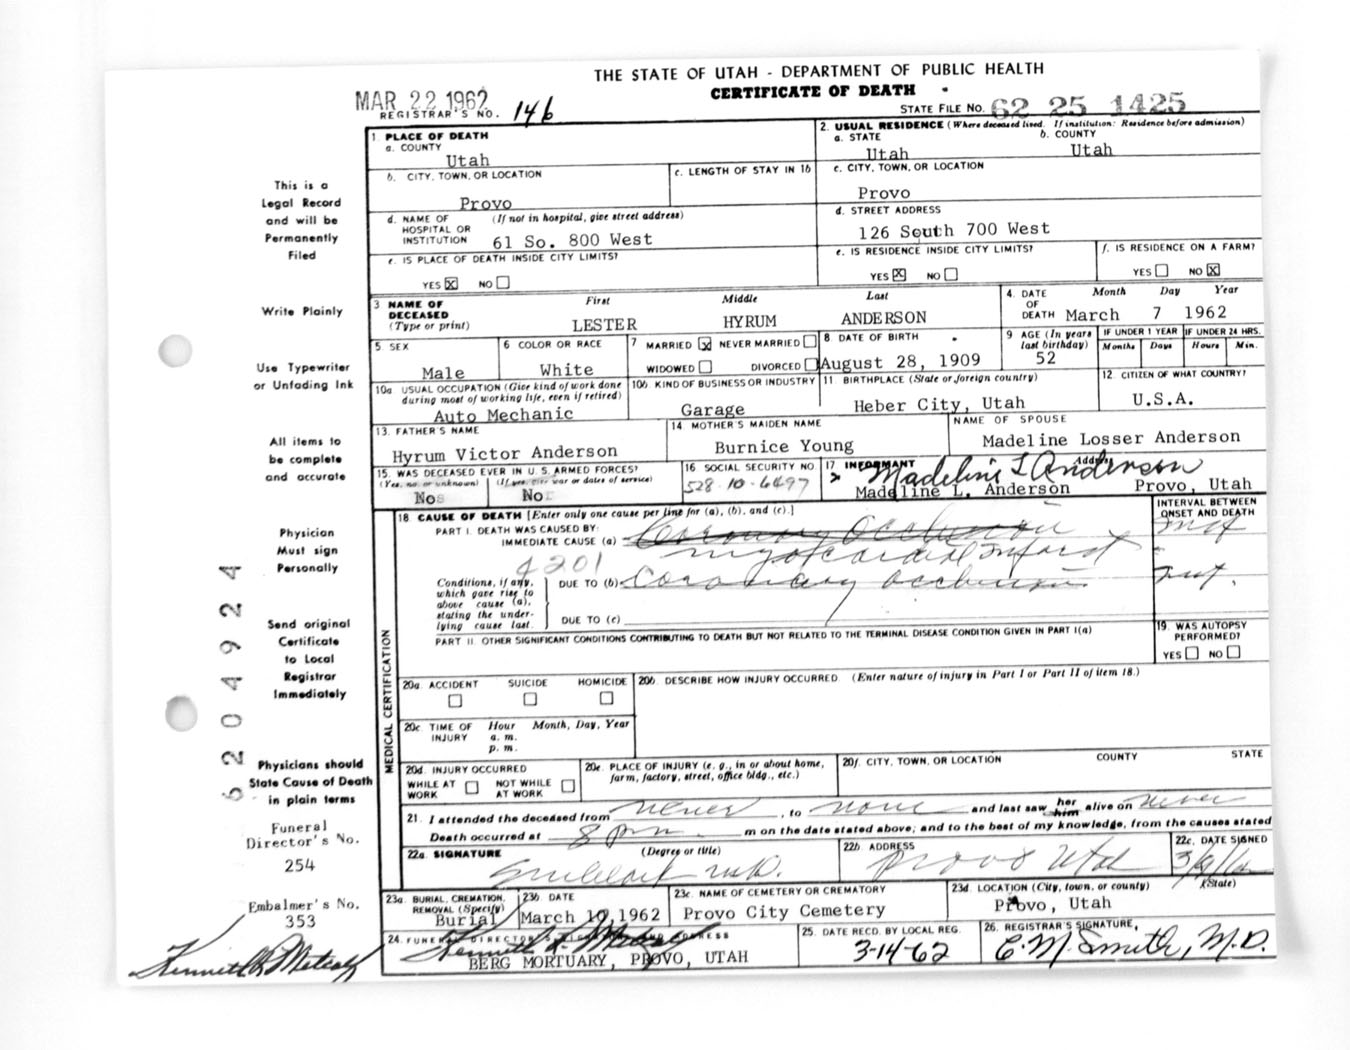 THE STATE OF UTAH - DEPARTMENT OF PUBLIC HEALTH
CERTIFICATE OF DEATH
MAR 22 1962
REGISTRAR'S NO. 146
STATE FILE NO. 62 25 1425
This is a
Legal Record
and will be
Permanently
Filed
Write Plainly
Use Typewriter
or Unfading Ink
All items to
be complete
and accurate
Physician
Must sign
Personally
Send original
Certificate
to Local
Registrar
Immediately
Physicians should
State Cause of Death
in plain terms
Funeral
Director's No.
254
Embalmer's No.
353
Kenneth L Metcalf
6204924
1 PLACE OF DEATH
a. COUNTY
Utah
2. USUAL RESIDENCE (Where deceased lived. If institution: Residence before admission)
a. STATE b. COUNTY
Utah Utah
b. CITY, TOWN, OR LOCATION
Provo
c. LENGTH OF STAY IN 1b
c. CITY, TOWN, OR LOCATION
Provo
d. NAME OF (If not in hospital, give street address)
HOSPITAL OR
INSTITUTION 61 So. 800 West
d. STREET ADDRESS
126 South 700 West
e. IS PLACE OF DEATH INSIDE CITY LIMITS?
YES X NO
e. IS RESIDENCE INSIDE CITY LIMITS?
YES X NO
f. IS RESIDENCE ON A FARM?
YES NO X
3 NAME OF DECEASED (Type or print)
First Middle Last
LESTER HYRUM ANDERSON
4. DATE OF DEATH
Month Day Year
March 7 1962
5 SEX
Male
6 COLOR OR RACE
White
7 MARRIED X NEVER MARRIED
WIDOWED DIVORCED
8. DATE OF BIRTH
August 28, 1909
9 AGE (In years last birthday)
52
IF UNDER 1 YEAR IF UNDER 24 HRS.
Months Days Hours Min.
10a USUAL OCCUPATION (Give kind of work done during most of working life, even if retired)
Auto Mechanic
10b. KIND OF BUSINESS OR INDUSTRY
Garage
11. BIRTHPLACE (State or foreign country)
Heber City, Utah
12. CITIZEN OF WHAT COUNTRY?
U.S.A.
13. FATHER'S NAME
Hyrum Victor Anderson
14 MOTHER'S MAIDEN NAME
Burnice Young
NAME OF SPOUSE
Madeline Losser Anderson
15. WAS DECEASED EVER IN U. S. ARMED FORCES?
(Yes, no, or unknown) (If yes, give war or dates of service)
No No
16 SOCIAL SECURITY NO.
528-10-6497
17 INFORMANT Address
Madeline L Anderson
Madeline L. Anderson Provo, Utah
MEDICAL CERTIFICATION
18 CAUSE OF DEATH [Enter only one cause per line for (a), (b), and (c).]
INTERVAL BETWEEN
ONSET AND DEATH
PART I. DEATH WAS CAUSED BY:
IMMEDIATE CAUSE (a) Coronary Occlusion
myocardial Infarct
4201
Conditions, if any, which gave rise to above cause (a), stating the underlying cause last.
DUE TO (b) Coronary Occlusion
DUE TO (c)
PART II OTHER SIGNIFICANT CONDITIONS CONTRIBUTING TO DEATH BUT NOT RELATED TO THE TERMINAL DISEASE CONDITION GIVEN IN PART I(a)
19. WAS AUTOPSY
PERFORMED?
YES NO
20a. ACCIDENT SUICIDE HOMICIDE
20b. DESCRIBE HOW INJURY OCCURRED. (Enter nature of injury in Part I or Part II of item 18.)
20c. TIME OF INJURY Hour Month, Day, Year
a. m.
p. m.
20d. INJURY OCCURRED
WHILE AT WORK NOT WHILE AT WORK
20e. PLACE OF INJURY (e. g., in or about home, farm, factory, street, office bldg., etc.)
20f. CITY, TOWN, OR LOCATION COUNTY STATE
21. I attended the deceased from never, to none and last saw her him alive on never
Death occurred at 8 pm m on the date stated above; and to the best of my knowledge, from the causes stated
22a. SIGNATURE (Degree or title)
M.D.
22b. ADDRESS
Provo Utah
22c. DATE SIGNED
23a. BURIAL, CREMATION, REMOVAL (Specify)
Burial
23b DATE
March 10, 1962
23c. NAME OF CEMETERY OR CREMATORY
Provo City Cemetery
23d. LOCATION (City, town, or county) (State)
Provo, Utah
24. FUNERAL DIRECTOR'S SIGNATURE AND ADDRESS
Kenneth L Metcalf
BERG MORTUARY, PROVO, UTAH
25. DATE RECD. BY LOCAL REG.
3-14-62
26. REGISTRAR'S SIGNATURE,
E. M. Smith, M.D.